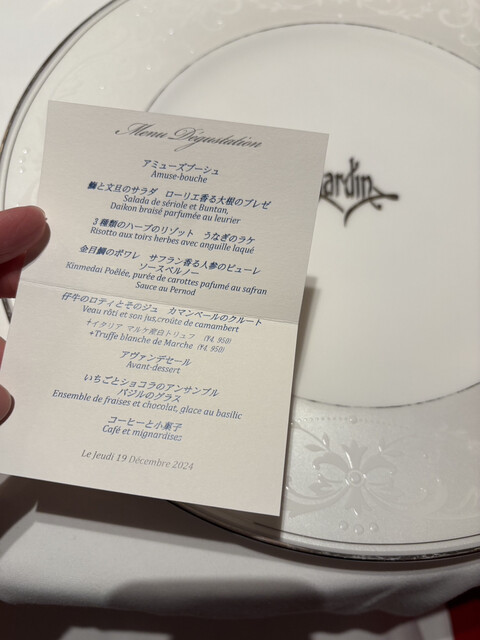 Menu Dégustation
アミューズブーシュ
Amuse-bouche
鰤と文旦のサラダ ローリエ香る大根のブレゼ
Salada de sériole et Buntan,
Daikon braisé parfumée au leurier
3種類のハーブのリゾット うなぎのラケ
Risotto aux toirs herbes avec anguille laqué
金目鯛のポワレ サフラン香る人参のピューレ
ソースペルノー
Kinmedai Poêlée, purée de carottes pafumé au safran
Sauce au Pernod
仔牛のロティとそのジュ カマンベールのクルート
Veau rôti et son jus,croûte de camambert
+イタリア マルケ産白トリュフ (¥4,950)
+Truffe blanche de Marche (¥4,950)
アヴァンデセール
Avant-dessert
いちごとショコラのアンサンブル
バジルのグラス
Ensemble de fraises et chocolat, glace au basilic
コーヒーと小菓子
Café et mignardises
Le Jeudi 19 Décembre 2024
ardin